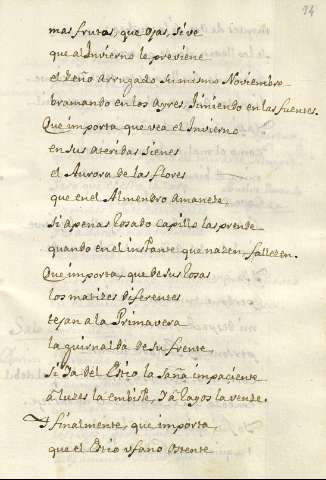 94
mas frutos, que ojas, si ve
que al Invierno le previene
el ceño arrugado su mismo Noviembre
bramando en los ayres, Jimiendo en las fuentes.
Que importa que vea el Invierno
en sus ateridas sienes
el Aurora de las flores
que en el Almendro amanece,
si apenas Rosado capillo las prende
quando en el instante que nazen, fallezen.
Que importa, que de sus Rosas
los matizes diferentes
tejan a la Primavera
la guirnalda de su frente,
si Ia del Estio la saña impaciente
â luzes la embiste, I â Rayos la vende.
I finalmente, que importa,
que el Estio vfano ostente